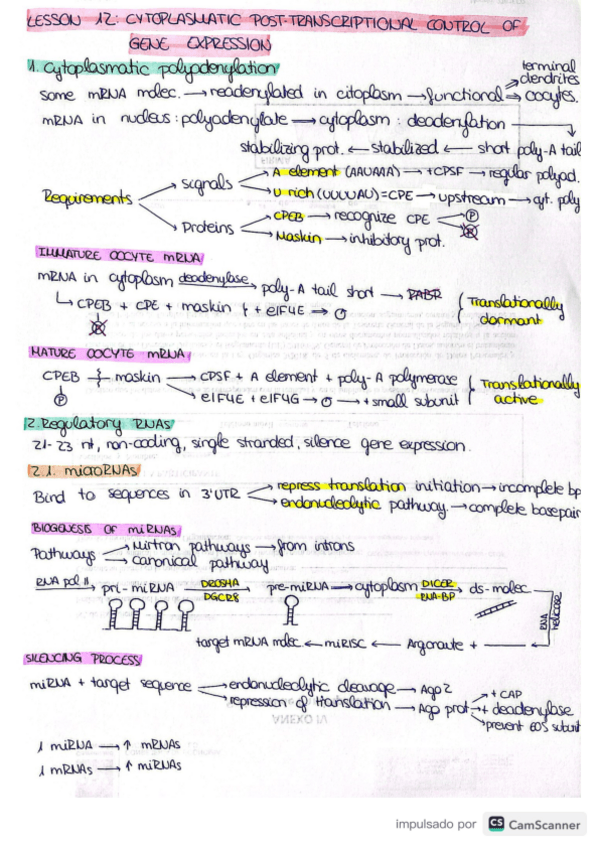 LESSON 12: CYTOPLASMATIC POST-TRANSCRIPTIONAL CONTROL OF
GENE EXPRESSION
1. Cytoplasmatic polyadenylation
some mRNA molec. → readenylated in citoplasm → functional ⇒ terminal dendrites
⇒ oocytes.
mRNA in nucleus: polyadenylate → cytoplasm: deadenylation
stabilizing prot. ← stabilized ← short poly-A tail
Requirements
signals
A element (AAUAAA) → +CPSF → regular polyad.
U rich (UUUUAU) = CPE → upstream → cyt. poly
Proteins
CPEB → recognize CPE
P
P
Maskin → inhibitory prot.
INMATURE OOCYTE mRNA
mRNA in cytoplasm deadenylase → poly-A tail short → PABP
↳ CPEB + CPE + maskin + eIF4E →
P
Translationally
dormant
MATURE OOCYTE mRNA
CPEB maskin → CPSF + A element + poly-A polymerase
P
→ eIF4E + eIF4G → → + small subunit
Translationally
active
2. Regulatory RNAs
21-23 nt, non-coding, single stranded, silence gene expression.
2.1. microRNAs
Bind to sequences in 3'UTR → repress translation initiation → incomplete bp
→ endonucleolytic pathway. → complete basepair
BIOGENESIS OF miRNAS
Pathways → Mirtron pathways → from introns
→ canonical pathway
RNA pol II → pri-miRNA DROSHA DGCR8 → pre-miRNA → cytoplasm DICER RNA-BP → ds-molec
RNA helicase
target mRNA molec ← miRISC ← Argonaute +
SILENCING PROCESS
miRNA + target sequence → endonucleolytic cleavage → Ago2
→ repression of translation → Ago prot → + CAP
→ + deadenylase
→ prevent 60S subunit
ANEXO VI
1 miRNA → ↑ mRNAs
1 mRNAs → ↑ miRNAs
impulsado por CS CamScanner